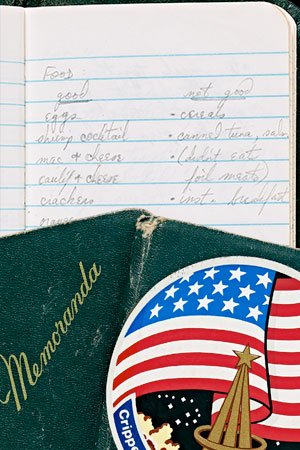 FOOD
good not good
eggs • cereals
shrimp cocktail • canned tuna, salm
mac & cheese • (didn't eat
caulif & cheese foil meats)
crackers • inst. breakfast
Memoranda
Crippe